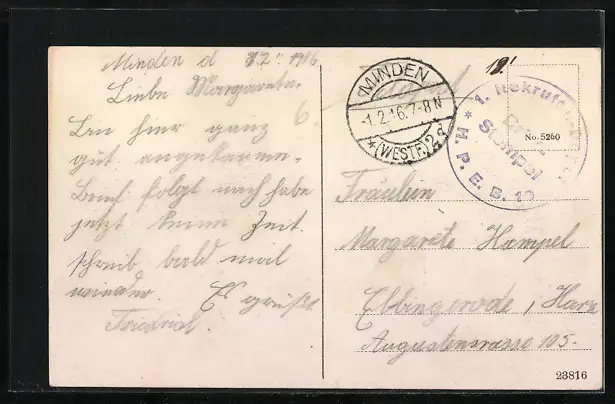 Minden d 1.2.1916
Liebe Margarete.
Bin hier ganz
gut angekommen.
Brief folgt nach habe
jetzt keine Zeit
schreib bald mal
wieder. Es grüßt
Friedrich.
MINDEN
-1.2.16.7-8N
* (WESTF.) 2 d
1. Rekruten-Depot
Brief
Stempel
* H. P. E. B. 10
No. 5260
Fräulein
Margarete Hampel
Elbingerode, Harz
Augustenstrasse 105.
23816